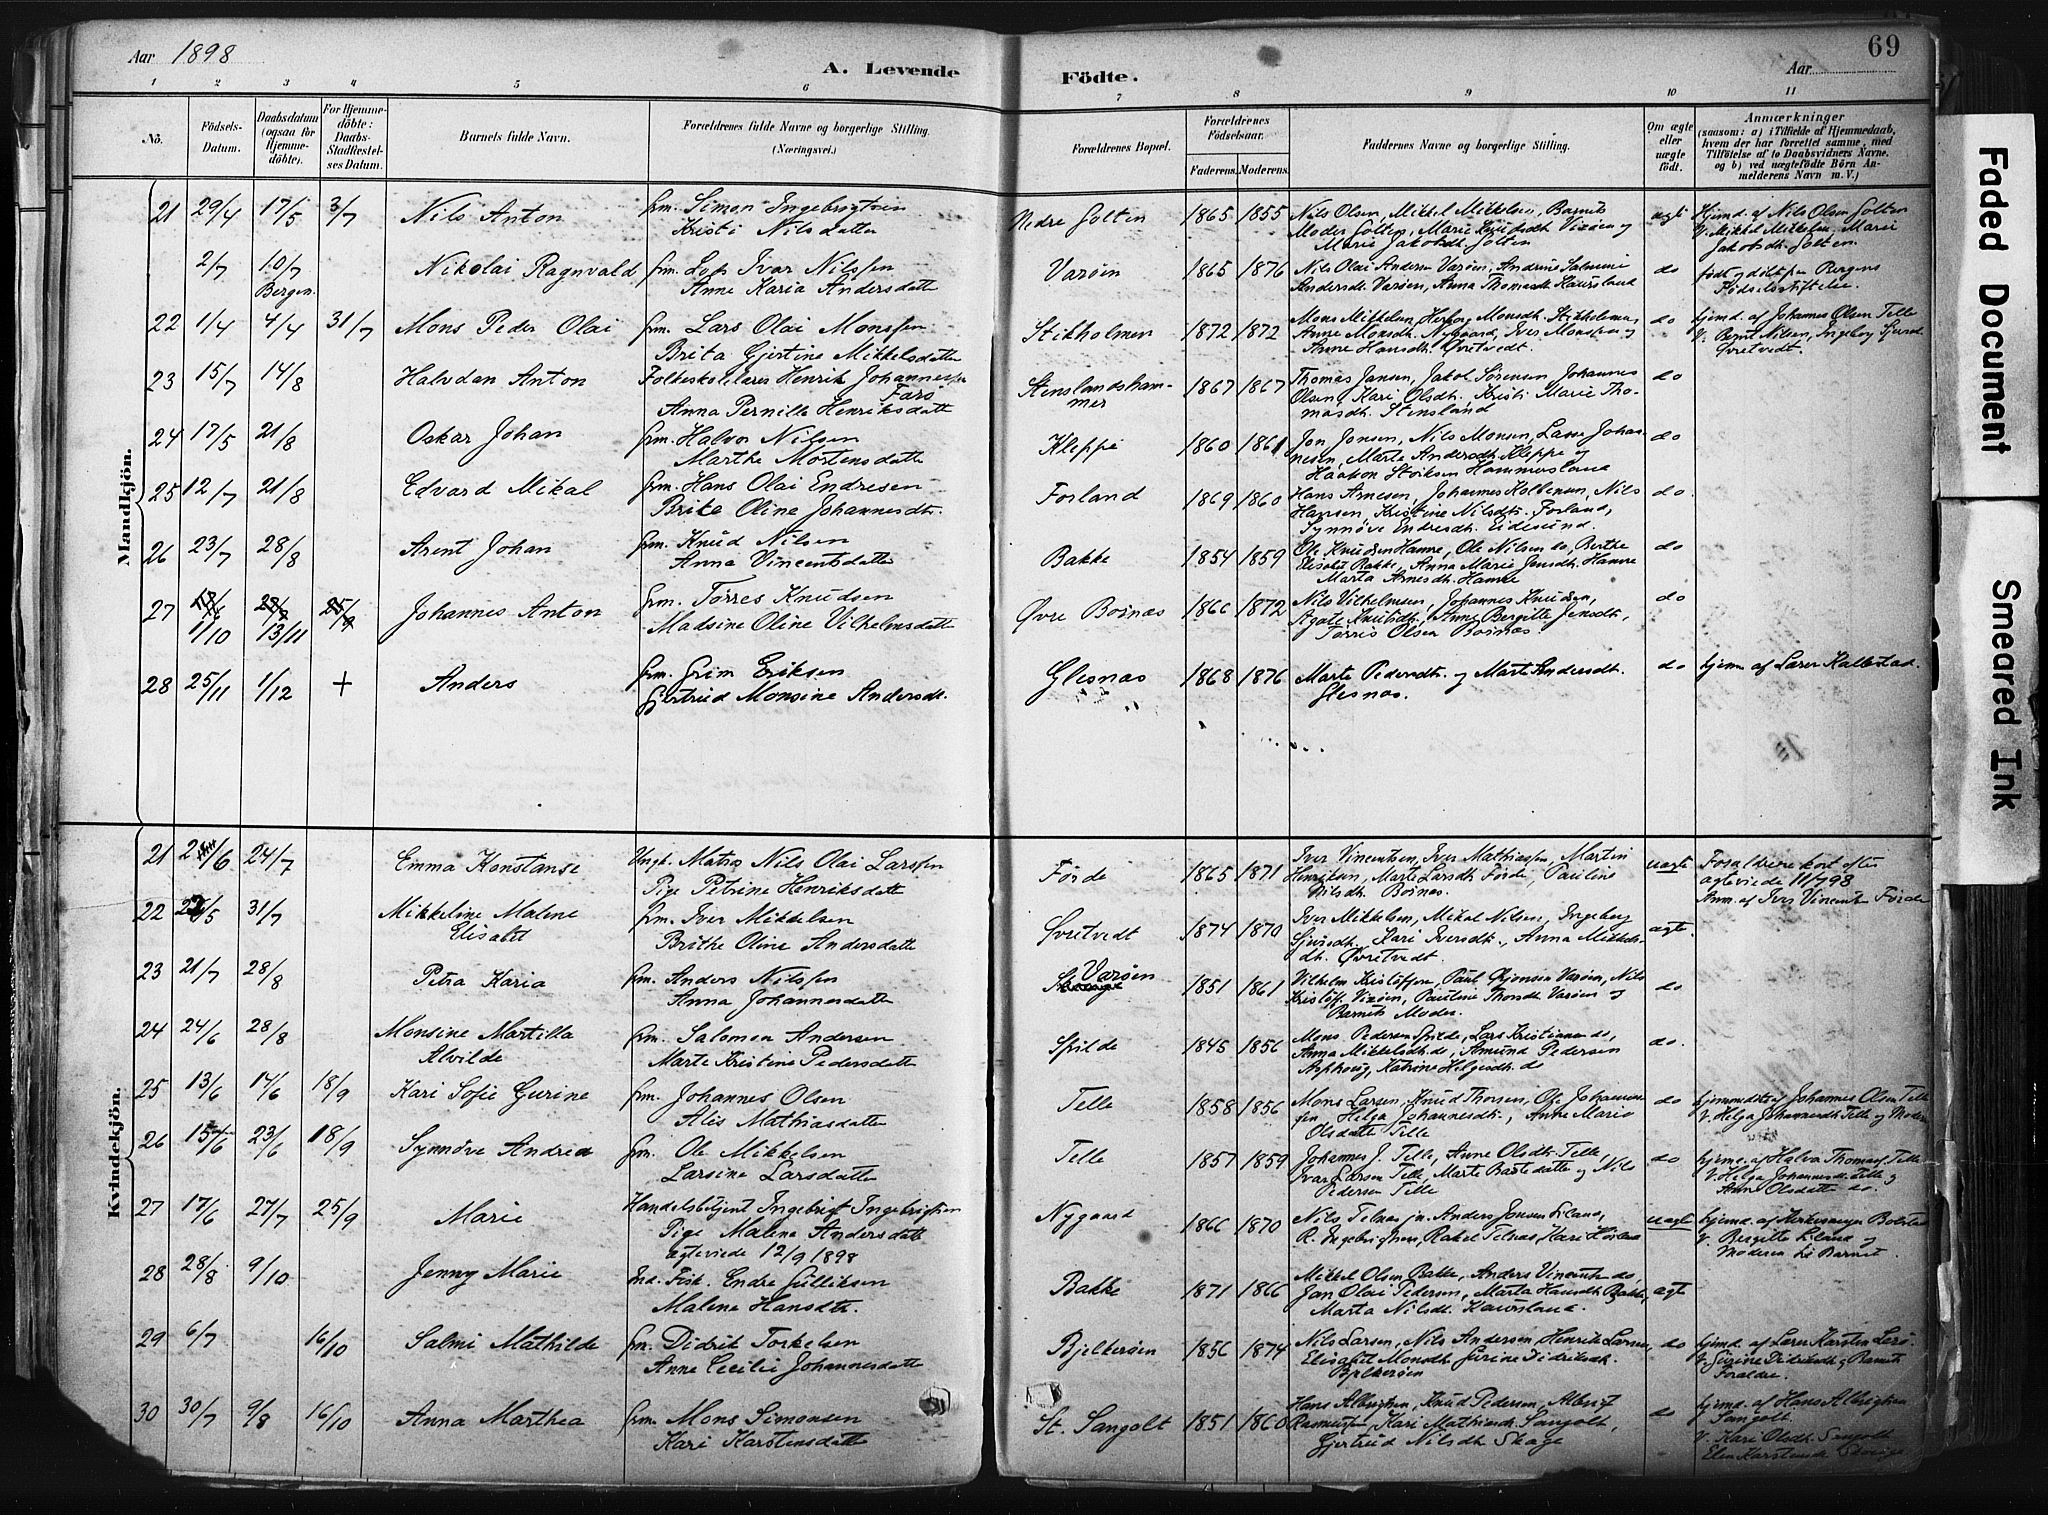 Aar 1898
A. Levende
Födte.
Aar
69
1 2 3 4 5 6 7 8 9 10 11
No.
Födsels-
Datum.
Daabsdatum
(ogsaa for
Hjemme-
döbte).
For Hjemme-
döbte:
Daabs-
Stadfæstel-
ses Datum.
Barnets fulde Navn.
Forældrenes fulde Navne og borgerlige Stilling.
(Næringsvei.)
Forældrenes Bopæl.
Forældrenes
Födselsaar.
Faderens. Moderens.
Faddernes Navne og borgerlige Stilling.
Om ægte
eller
uægte
födt.
Anmærkninger
(saasom: a) i Tilfælde af Hjemmedaab,
hvem der har forrettet samme, med
Tilföielse af to Daabsvidners Navne,
og b) ved uægtefödte Börn An-
melderens Navn m. V.)
Mandkjön.
21 29/4 17/5 3/7 Nils Anton frm. Simon Ingebrigtsen
Kristi Nilsdatter
Nedre Golten 1865 1855 Nils Olsen, Mikkel Mikkelsen, Barnets
Moder Golten, Marie Knudsdt. Vizöen og
Marie Jakobsdt. Golten
ægte Hjmd. af Nils Olsen Golten
V. Mikkel Mikkelsen, Marie
Jakobsdt. Golten.
2/7 10/7 Bergen. Nikolai Ragnvald frm. Lods Ivar Nilssen
Anne Karia Andersdatter
Varöen 1865 1876 Nils Olai Andersen Varöen, Andrine Salmine
Andersdt. Varöen, Anna Thomasdt. Kaursland
do födt og döbt paa Bergens
Födselsstiftelse.
22 1/4 4/4 31/7 Mons Peder Olai frm. Lars Olai Monssen
Brita Gjertine Mikkelsdatter
Stikholmen 1872 1872 Mons Mikkelsen, Herborg Monsdt. Stikholmen,
Anne Monsdt. Nygaard, Iver Monssen og
Anne Hansdt. Övretvedt.
do hjemd. af Johannes Olsen Telle
V. Bernt Nilsen, Ingeborg Sjursdt.
Övretvedt.
23 15/7 14/8 Halvdan Anton Folkeskolelærer Henrik Johannessen
Færö
Anna Pernille Henriksdatter
Stenslandsham-
mer 1867 1867 Thomas Jansen, Jakob Sörensen, Johannes
Olsen, Kari Olsdt., Kristi Marie Tho-
masdt. Stensland
do
24 17/5 21/8 Oskar Johan frm. Halvor Nilsen
Marthe Mortensdatter
Kleppe 1860 1861 Jon Jonsen, Nils Monsen, Lasse Johan-
nesen, Marte Andersdt. Kleppe og
Haakon Hammersland
do
25 12/7 21/8 Edvard Mikal frm. Hans Olai Endresen
Brita Oline Johannesdt.
Forland 1869 1860 Hans Arnesen, Johannes Kolbensen, Nils
Hansen, Kristine Nilsdt. Forland,
Synnöve Endresdt. Eidesund.
do
26 23/7 28/8 Arent Johan frm. Knud Nilsen
Anna Vincentsdatter
Bakke 1854 1859 Ole Knudsen Hamre, Ole Nilsen do, Berthe
Elisabet Bakke, Anna Marie Jensdt. Hamre
Marta Arnesdt. Hamre
do
27 1/10 13/11 Johannes Anton frm. Törres Knudsen
Madsine Oline Vilhelmsdatter
Övre Bornæs 1866 1872 Nils Vilhelmsen, Johannes Knudsen,
Agate Knudsdt., Anne Bergitte Jensdt.,
Törris Olsen Bornæs.
do
28 25/11 1/12 + Anders frm. Grim Eriksen
Gjertrud Monsine Andersdt.
Glesnæs 1868 1876 Marte Pedersdt. og Marte Andersdt.
Glesnæs.
do hjem. af Lærer Kallestad.
Kvindekjön.
21 24/7 Emma Konstanse Ungk. Matros Nils Olai Larssen
Pige Petrine Henriksdatter
Förde 1865 1871 Iver Vincentsen, Iver Mathiassen, Martin
Henriksen, Marte Larsdt. Förde, Pauline
Nilsdt. Bornæs.
uægte Forældrene kort efter
ægteviede 11/7 98
Anm. af Iver Vincentsen Förde
22 31/7 Mikkeline Malene
Elisabet
frm. Iver Mikkelsen
Brithe Oline Andersdatter
Övretvedt 1874 1870 Iver Mikkelsen, Mikal Nilsen, Ingeborg
Sjursdt., Kari Iversdt., Anna Mikkels-
dt. Övretvedt.
ægte.
23 21/7 28/8 Petra Karia frm. Anders Nilssen
Anna Johannesdatter
Varöen 1851 1861 Vilhelm Kristoffersen, Paul Varöen, Nils
Kristoff. Vizöen, Pauline Thorsdt. Varöen og
Barnets Moder.
do
24 24/6 28/8 Monsine Martilla
Alvilde
frm. Salomon Andersen
Marte Kristine Pedersdatter
Spilde 1845 1856 Mons Pedersen Spilde, Lars Kristiansen do,
Anna Mikkelsdt. do, Amund Pedersen
Katrine Helgesdt. do
do.
25 13/6 14/6 18/9 Kari Sofie Gurine frm. Johannes Olsen
Alis Mathiasdatter
Telle 1858 1856 Mons Larsen, Knud Thorsen, Ole Johannes-
sen, Helga Johannesdt., Anne Marie
Olsdatter Telle
do hjemmedöbt af Johannes Olsen Telle
V. Helga Johannesdt. Telle og Moderen
26 15/6 23/6 18/9 Synnöve Andrea frm. Ole Mikkelsen
Larsine Larsdatter
Telle 1857 1859 Johannes J. Telle, Anne Olsdt. Telle,
Ivar Larsen Telle, Marte Baatsdatter og Nils
Pedersen Telle
do hjemd. af Halvor Thomas. Telle
V. Helga Johannesdt. Telle og
Anne Olsdatter do.
27 17/6 27/7 25/9 Marie Handelsbetjent Ingebrigt Ingebrigtsen
Pige Malene Andersdatter
ægteviede 12/9 1898
Nygaard 1866 1870 Nils Telnæs jr. Anders Jonsen Liland,
R. Ingebrigtsen, Rakel Telnæs, Kari
uægte hjemd. af Kirkesanger Bolstad
V. Bergitte Liland og
Moderen til Barnet.
28 28/8 9/10 Jenny Marie Ind. Fisk. Endre Gulliksen
Malene Hansdt.
Bakke 1871 1866 Mikkel Olsen Bakke, Anders Vincentsen do,
Jan Olai Pedersen, Marta Hansdt. Bakke,
Marta Nilsdt. Kaursland.
ægte
29 6/7 16/10 Salmi Mathilde frm. Didrik Torkelsen
Anne Cecilie Johannesdatter
Bjelkeröen 1856 1874 Nils Larsen, Nils Andersen, Henrik Larsen,
Elisabet Monsdt. Gurine Didriksdt.
Bjelkeröen
do hjemd. af Lærer Karsten Lerö
V. Gurine Didriksdt. og Barnets
Forældre.
30 30/7 9/8 16/10 Anna Marthea frm. Mons Simonsen
Kari Karstensdatter
St. Sangolt 1851 1860 Hans Albrigtsen, Knud Pedersen, Albrigt
Rasmussen, Kari Mathiasdt. Sangolt,
Gjertrud Nilsdt. Skage
do hjemd. af Hans Albrigtsen
Sangolt
V. Kari Olsdt. Sangolt
Elen Karstensdt.
Faded Document
Smeared Ink